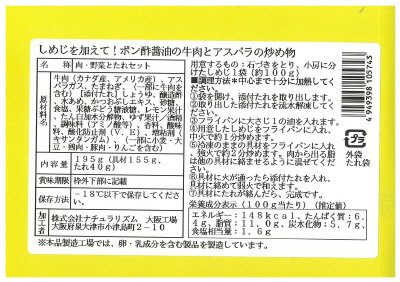 しめじを加えて!ポン酢醤油の牛肉とアスパラの炒め物
名 称 肉・野菜とたれセット
原材料名
牛肉(カナダ産、アメリカ産)、アス
パラガス、たまねぎ、(一部に牛肉を
含む)【添付たれ】しょうゆ、醸造酢
、水あめ、かつおぶしエキス、砂糖、
食塩、果糖ぶどう糖液糖、レモン果汁
、たん白加水分解物、ゆず果汁/酒精
、調味料(アミノ酸等)、香料、香辛
料、酸化防止剤(V.E)、増粘剤(
キサンタンガム)、(一部に小麦・大
豆・鶏肉・豚肉・りんごを含む)
内容量 195g(具材155g、
たれ40g)
賞味期限 枠外下部に記載
保存方法 -18℃以下で保存してください。
加工者
株式会社ナチュラリズム 大阪工場
大阪府泉大津市小津島町2-10
※本品製造工場では、卵・乳成分を含む製品を製造しています。
用意するもの:石づきをとり、小房に分
けたしめじ1袋(約100g)
■調理方法*中心まで十分に加熱してく
ださい。
①袋を開け、添付たれを取り出します。
②取り出した添付たれを流水解凍してく
ださい。
③フライパンに大さじ1の油を入れます。
④用意したしめじをフライパンに入れ、
中火で約1分炒めます。
⑤冷凍のままの具材をフライパンに入れ
強火で約2分炒めます。肉から出る脂
は他の具材に絡ませるように混ぜてくだ
さい。
⑥具材に火が通ったら添付たれを入れ、
具材に絡めて弱火で和えます。
⑦具材にたれが絡んだら、完成です。
栄養成分表示(100g当たり)(推定値)
エネルギー:148kcal、たんぱく質:6.
4g、脂質:11.0g、炭水化物:5.7g、
食塩相当量:1.6g
4969398105743
プラ
外袋
たれ袋